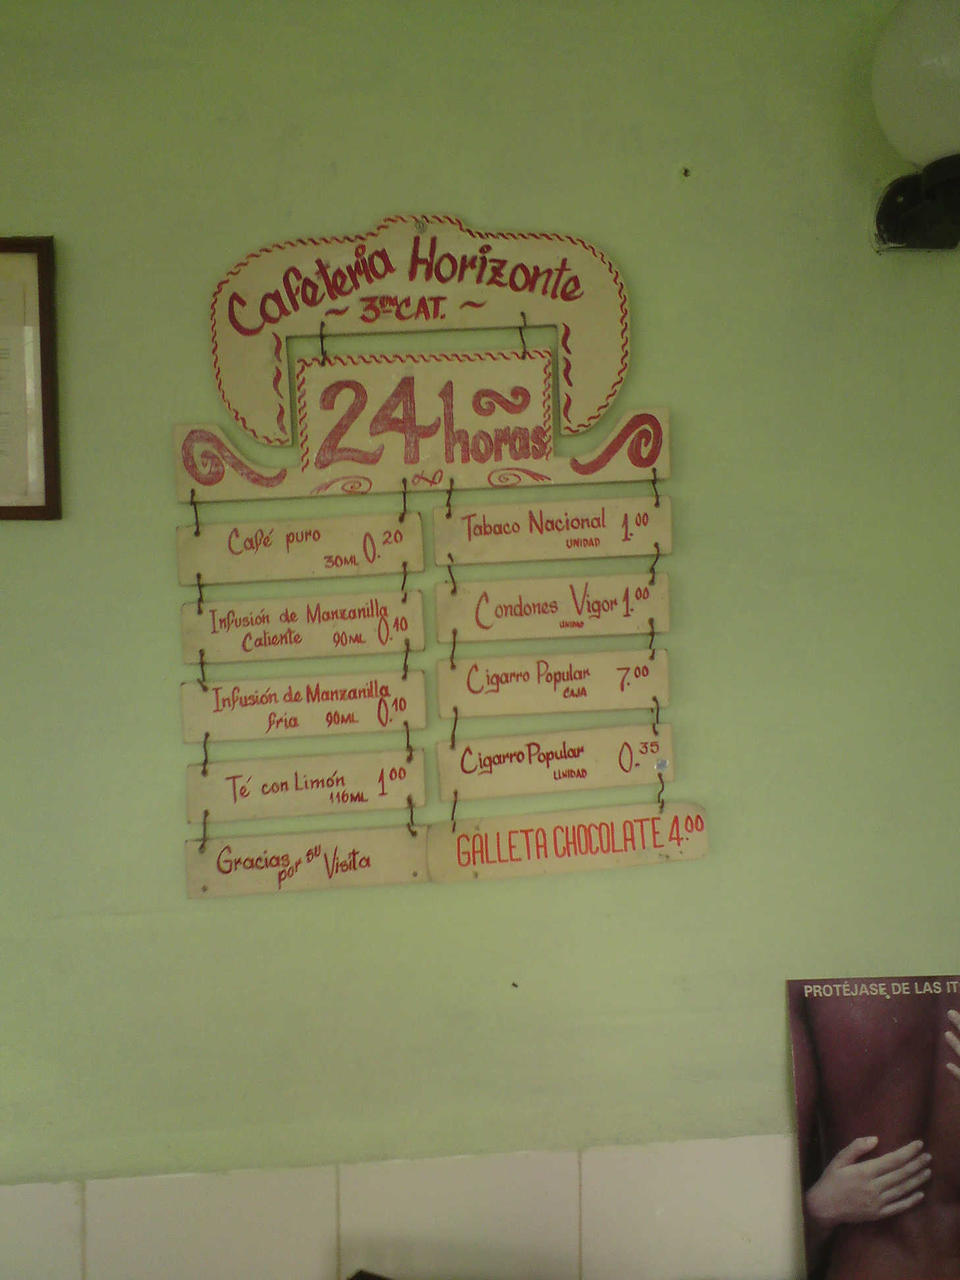 Cafeteria Horizonte
~ 3ra CAT. ~
24 horas
Café puro
30ML 0.20
Infusión de Manzanilla
Caliente 90ML 0.10
Infusión de Manzanilla
fria 90ML 0.10
Té con Limón
116ML 1.00
Gracias
por su Visita
Tabaco Nacional
UNIDAD 1.00
Condones Vigor 1.00
UNIDAD
Cigarro Popular
CAJA 7.00
Cigarro Popular
UNIDAD 0.35
GALLETA CHOCOLATE 4.00
PROTÉJASE DE LAS IT